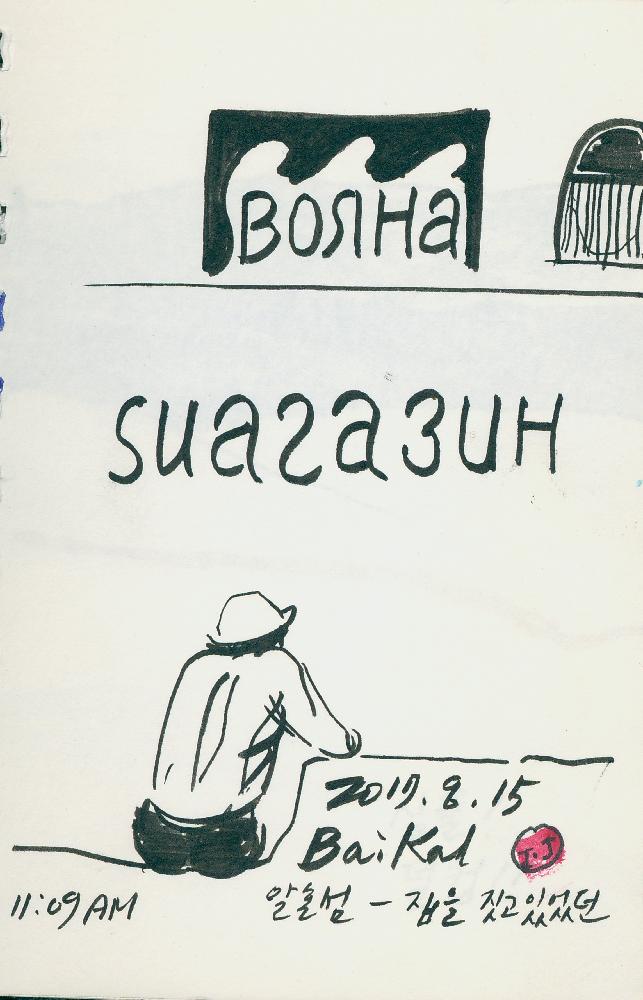 волна
sиагазин
2017.8.15
BaiKal J.J
11:09 AM 알혼섬 - 집을 짓고있었던